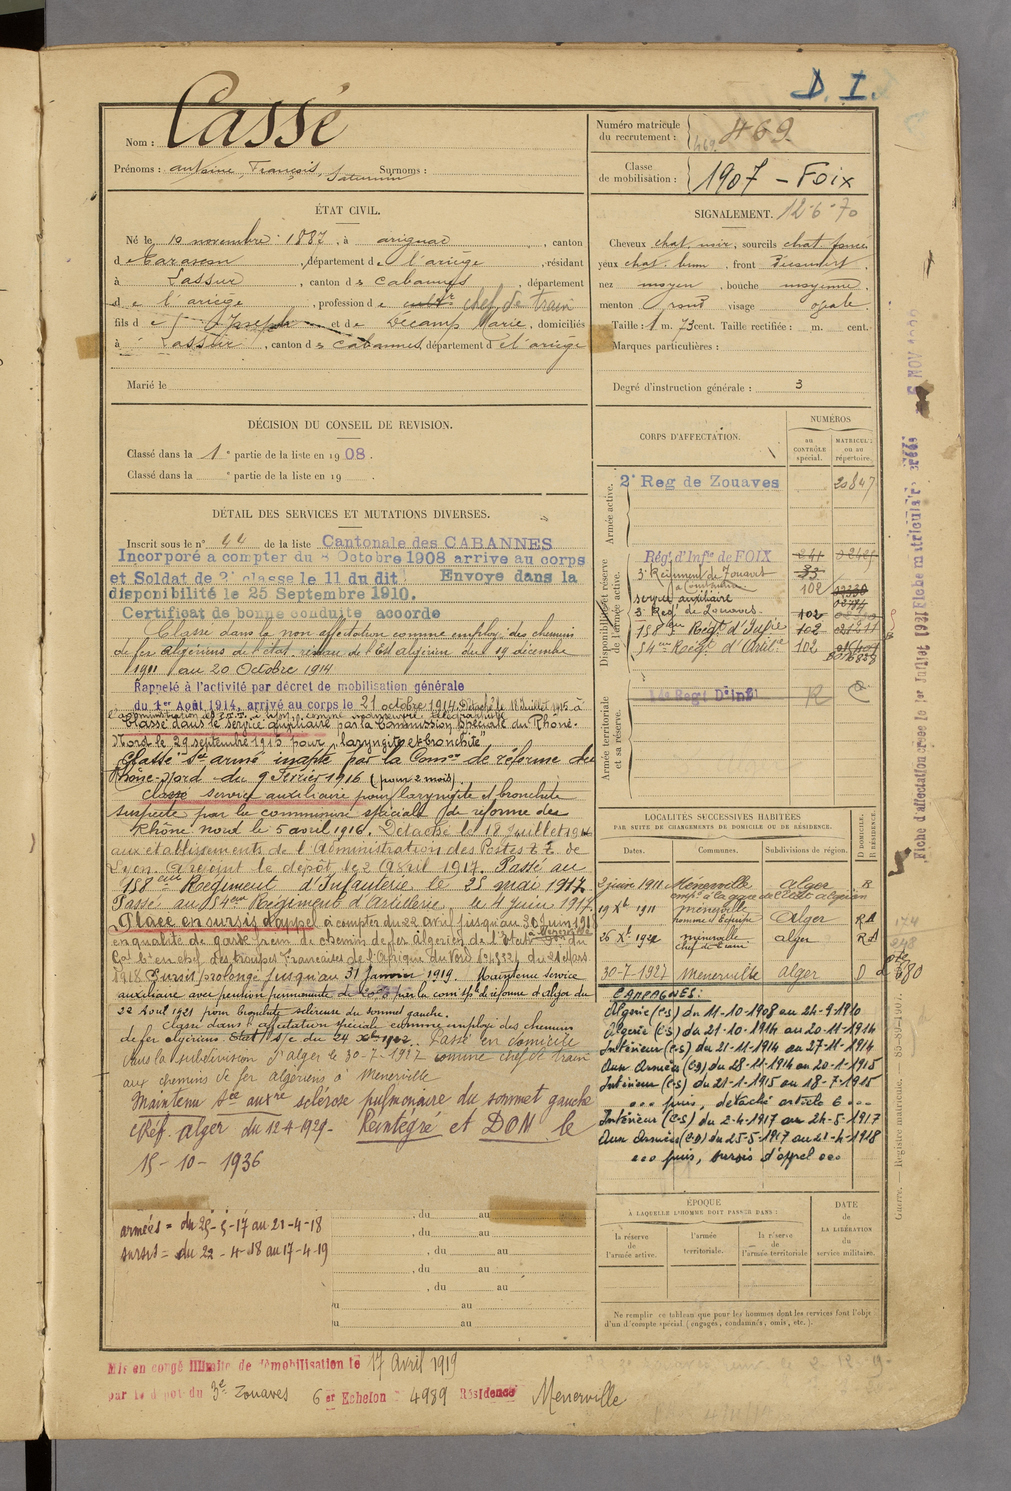 D. I.
Nom : Cassé
Prénoms : antoine, François, Saturnin Surnoms :
Numéro matricule du recrutement : 469
Classe de mobilisation : 1907 - Foix
ÉTAT CIVIL.
Né le 10 novembre 1887, à arignac, canton
d e Tarascon, département de l'ariège, résidant
à Lassur, canton des Cabannes, département
d e l'ariège, profession de chef de train
fils de Joseph et de Décamp Marie, domiciliés
à Lassur, canton des Cabannes, département de l'ariège
Marié le
SIGNALEMENT. 12-6-70
Cheveux chat. noir, sourcils chat. foncé
yeux chat. brun, front découvert,
nez moyen, bouche moyenne,
menton rond visage ovale.
Taille : 1 m. 73 cent. Taille rectifiée : m. cent.
Marques particulières :
Degré d'instruction générale : 3
DÉCISION DU CONSEIL DE REVISION.
Classé dans la 1e partie de la liste en 1908.
Classé dans la e partie de la liste en 19 .
DÉTAIL DES SERVICES ET MUTATIONS DIVERSES.
Inscrit sous le n° 44 de la liste Cantonale des CABANNES
Incorporé à compter du 8 Octobre 1908 arrive au corps
et Soldat de 2e classe le 11 du dit. Envoye dans la
disponibilité le 25 Septembre 1910.
Certificat de bonne conduite accorde
Classé dans la non affectation comme employé des chemins
de fer algériens de l'état réseau de l'Est algérien du 19 décembre
1911 au 20 Octobre 1914
Rappelé à l'activité par décret de mobilisation générale
du 1er Août 1914, arrivé au corps le 21 octobre 1914. Détaché le 18 Juillet 1915 à
Classé dans le service auxiliaire par la Commission spéciale du Rhône-
Nord le 29 septembre 1915 pour "laryngite et bronchite"
Classé sce armé inapte par la Comon de réforme du
Rhône-Nord du 9 Février 1916 (pour 2 mois)
Classé service auxiliaire pour laryngite et bronchite
suspecte par la commission spéciale de réforme des
Rhône nord le 5 avril 1916. Détaché le 18 Juillet 1916
aux établissements de l'Administration des Postes T.T. de
Lyon. a rejoint le dépôt le 2 Avril 1917. Passé au
158eme Régiment d'Infanterie le 25 mai 1917.
Passé au 54eme Régiment d'Artillerie, le 4 juin 1917.
Placé en sursis d'appel à compter du 22 avril jusqu'au 30 Juin 1918
en qualité de garde frein de chemin de fer algérien de l'Etat
Gal Ct en chef des troupes Françaises de l'Afrique du Nord du 21 Mars
1918. Sursis prolongé jusqu'au 31 Janvier 1919. Maintenu service
auxiliaire avec pension permanente de 20% par la comon spéle de réforme d'alger du
22 Aout 1921 pour bronchite scléreuse du sommet gauche.
Classé dans l'affectation spéciale comme employé des chemins
de fer algériens Etat s/c du 24 Passé en domicile
dans la subdivision d'alger le 30-7-1927 comme chef de train
aux chemins de fer algériens à Menerville
Maintenu sce auxre sclérose pulmonaire du sommet gauche
Réf. Alger du 12-4-1929 - Réintégré et DON le
15-10-1936
armées = du 25-5-17 au 21-4-18
sursis = du 22-4-18 au 17-4-19
, du au
, du au
, du au
, du au
, du au
du au
du au
CORPS D'AFFECTATION.
NUMÉROS
au CONTRÔLE spécial.
MATRICULE ou au répertoire.
Armée active.
2e Reg de Zouaves 20847
Disponibilité et réserve de l'armée active.
Régt. d'Infie de FOIX 241
3e Régiment de Zouaves 33
service auxiliaire 102
3e Régt de Zouaves. 102
158eme Régt d'Infie 102
54eme Régt d'Artie 102
Armée territoriale et sa réserve.
14e Regt D'inf
LOCALITÉS SUCCESSIVES HABITÉES
PAR SUITE DE CHANGEMENTS DE DOMICILE OU DE RÉSIDENCE.
Dates. Communes. Subdivisions de région. D DOMICILE. R RÉSIDENCE.
2 juin 1911 Ménerville alger R
19 Xbre 1911 Ménerville homme d'équipe Alger RA
26 Xbre 1921 Ménerville chef de train alger RA
30-7-1927 Menerville alger D
CAMPAGNES :
Algérie (C-S) du 11-10-1908 au 24-9-1910
Algérie (C-S) du 21-10-1914 au 20-11-1914
Intérieur (C-S) du 21-11-1914 au 27-11-1914
Aux Armées (C-D) du 28-11-1914 au 20-1-1915
Intérieur (C-S) du 21-1-1915 au 18-7-1915
puis, détaché article 6
Intérieur (C-S) du 2-4-1917 au 24-5-1917
Aux Armées (C-D) du 25-5-1917 au 21-4-1918
puis, sursis d'appel
ÉPOQUE
À LAQUELLE L'HOMME DOIT PASSER DANS :
la réserve de l'armée active.
l'armée territoriale.
la réserve de l'armée territoriale
DATE de LA LIBÉRATION du service militaire.
Ne remplir ce tableau que pour les hommes dont les services font l'objet
d'un décompte spécial (engagés, condamnés, omis, etc.).
Mis en congé illimité de démobilisation le 17 Avril 1919
par le dépôt du 3e Zouaves 6er Echelon 4989 Résidence Menerville
Fiche d'affectation créée le 1er Juillet 1931 Fiche matricule créée
NOV
Guerre. — Registre matricule. — 83-89-1907.